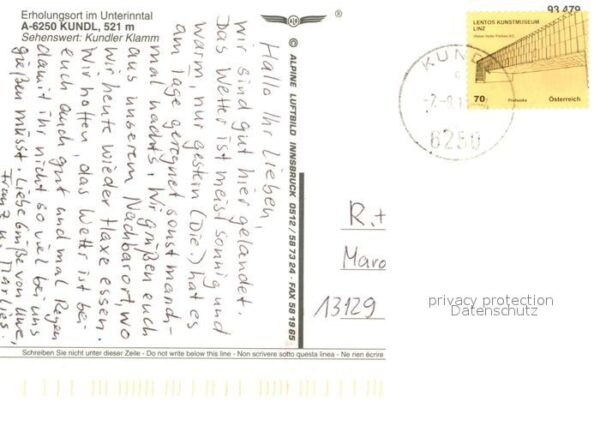 Erholungsort im Unterinntal
A-6250 KUNDL, 521 m
Sehenswert: Kundler Klamm
®
© ALPINE LUFTBILD INNSBRUCK 0512 / 58 73 24 · FAX 58 19 65
Hallo Ihr Lieben,
wir sind gut hier gelandet.
Das Wetter ist meist sonnig und
warm, nur gestern (Die.) hat es
am Tage geregnet sonst manch-
mal nachts. Wir grüßen euch
aus unserem Nachbarort, wo
wir heute wieder Haxe essen.
Wir hoffen, das Wetter ist bei
euch auch gut und mal Regen
damit ihr nicht so viel bei uns
gießen müsst. Liebe Grüße von Uwe,
Franz u. Marlies.
93 479
LENTOS KUNSTMUSEUM
LINZ
70
Österreich
KUNDL
6250
R. +
Maro
13129
privacy protection
Datenschutz
Schreiben Sie nicht unter dieser Zeile - Do not write below this line - Non scrivere sotto questa linea - Ne rien écrire